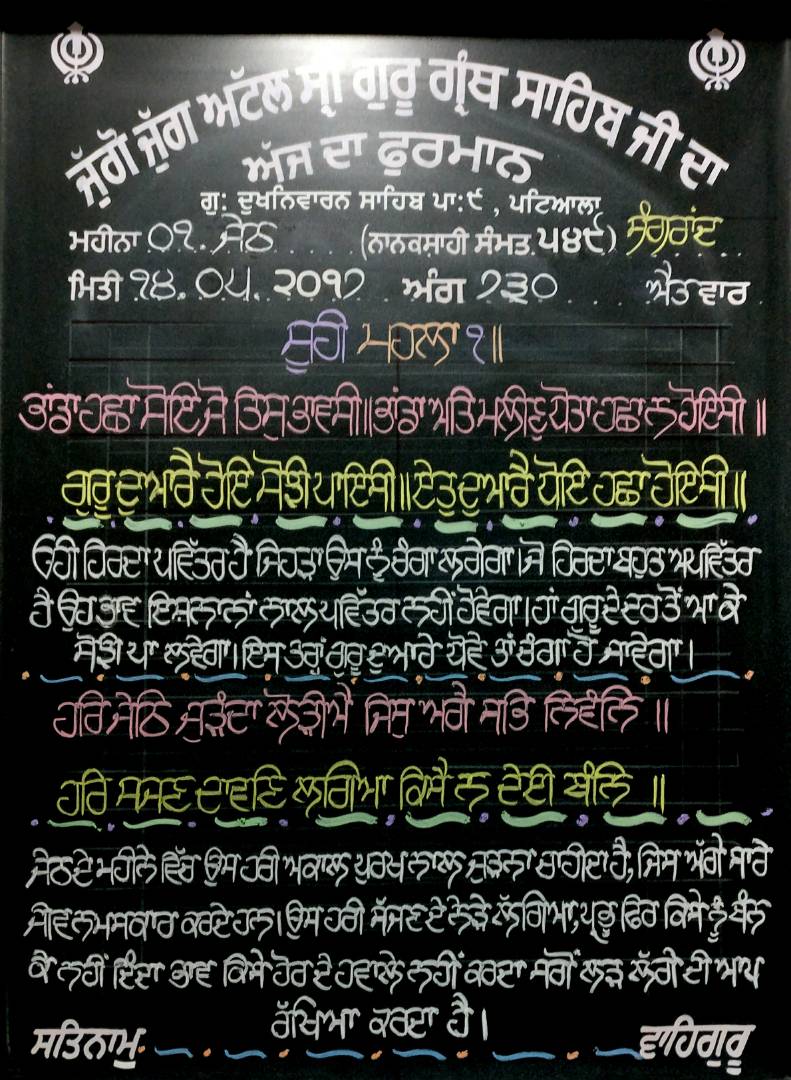 ਜੁੱਗੋ ਜੁੱਗ ਅੱਟਲ ਸ੍ਰੀ ਗੁਰੂ ਗ੍ਰੰਥ ਸਾਹਿਬ ਜੀ ਦਾ
ਅੱਜ ਦਾ ਫੁਰਮਾਨ
ਗੁ: ਦੁਖਨਿਵਾਰਨ ਸਾਹਿਬ ਪਾ:੯ , ਪਟਿਆਲਾ
ਮਹੀਨਾ ੦੧. ਜੇਠ (ਨਾਨਕਸ਼ਾਹੀ ਸੰਮਤ ੫੪੯) ਸੰਗਰਾਂਦ
ਮਿਤੀ ੧੪. ੦੫. ੨੦੧੭ ਅੰਗ ੭੩੦ ਐਤਵਾਰ
ਸੂਹੀ ਮਹਲਾ ੧॥
ਭਾਂਡਾ ਹਛਾ ਸੋਇ ਜੋ ਤਿਸੁ ਭਾਵਸੀ॥ਭਾਂਡਾ ਅਤਿ ਮਲੀਣੁ ਧੋਤਾ ਹਛਾ ਨ ਹੋਇਸੀ ॥
ਗੁਰੂ ਦੁਆਰੈ ਹੋਇ ਸੋਝੀ ਪਾਇਸੀ॥ਏਤੁ ਦੁਆਰੈ ਧੋਇ ਹਛਾ ਹੋਇਸੀ॥
ਓਹੀ ਹਿਰਦਾ ਪਵਿੱਤਰ ਹੈ ਜਿਹੜਾ ਉਸ ਨੂੰ ਚੰਗਾ ਲਗੇਗਾ।ਜੋ ਹਿਰਦਾ ਬਹੁਤ ਅਪਵਿੱਤਰ
ਹੈ ਉਹ ਭਾਵ ਇਸ਼ਨਾਨਾਂ ਨਾਲ ਪਵਿੱਤਰ ਨਹੀਂ ਹੋਵੇਗਾ।ਹਾਂ ਗੁਰੂ ਦੇ ਦਰ ਤੋਂ ਆ ਕੇ
ਸੋਝੀ ਪਾ ਲਵੇਗਾ।ਇਸ ਤਰ੍ਹਾਂ ਗੁਰੂ ਦੁਆਰੇ ਧੋਵੇ ਤਾਂ ਚੰਗਾ ਹੋ ਜਾਵੇਗਾ।
ਹਰਿ ਜੇਠਿ ਜੁੜੰਦਾ ਲੋੜੀਐ ਜਿਸੁ ਅਗੈ ਸਭਿ ਨਿਵੰਨਿ ॥
ਹਰਿ ਸਜਣ ਦਾਵਣਿ ਲਗਿਆ ਕਿਸੈ ਨ ਦੇਈ ਬੰਨਿ ॥
ਜੇਠ ਦੇ ਮਹੀਨੇ ਵਿੱਚ ਉਸ ਹਰੀ ਅਕਾਲ ਪੁਰਖ ਨਾਲ ਜੁੜਨਾ ਚਾਹੀਦਾ ਹੈ, ਜਿਸ ਅੱਗੇ ਸਾਰੇ
ਜੀਵ ਨਮਸਕਾਰ ਕਰਦੇ ਹਨ। ਉਸ ਹਰੀ ਸੱਜਣ ਦੇ ਨੇੜੇ ਲੱਗਿਆ, ਪ੍ਰਭੂ ਫਿਰ ਕਿਸੇ ਨੂੰ ਬੰਨ
ਕੇ ਨਹੀਂ ਦਿੰਦਾ ਭਾਵ ਕਿਸੇ ਹੋਰ ਦੇ ਹਵਾਲੇ ਨਹੀਂ ਕਰਦਾ ਸਗੋਂ ਲੜ ਲੱਗੇ ਦੀ ਆਪ
ਰੱਖਿਆ ਕਰਦਾ ਹੈ।
ਸਤਿਨਾਮੁ ਵਾਹਿਗੁਰੂ